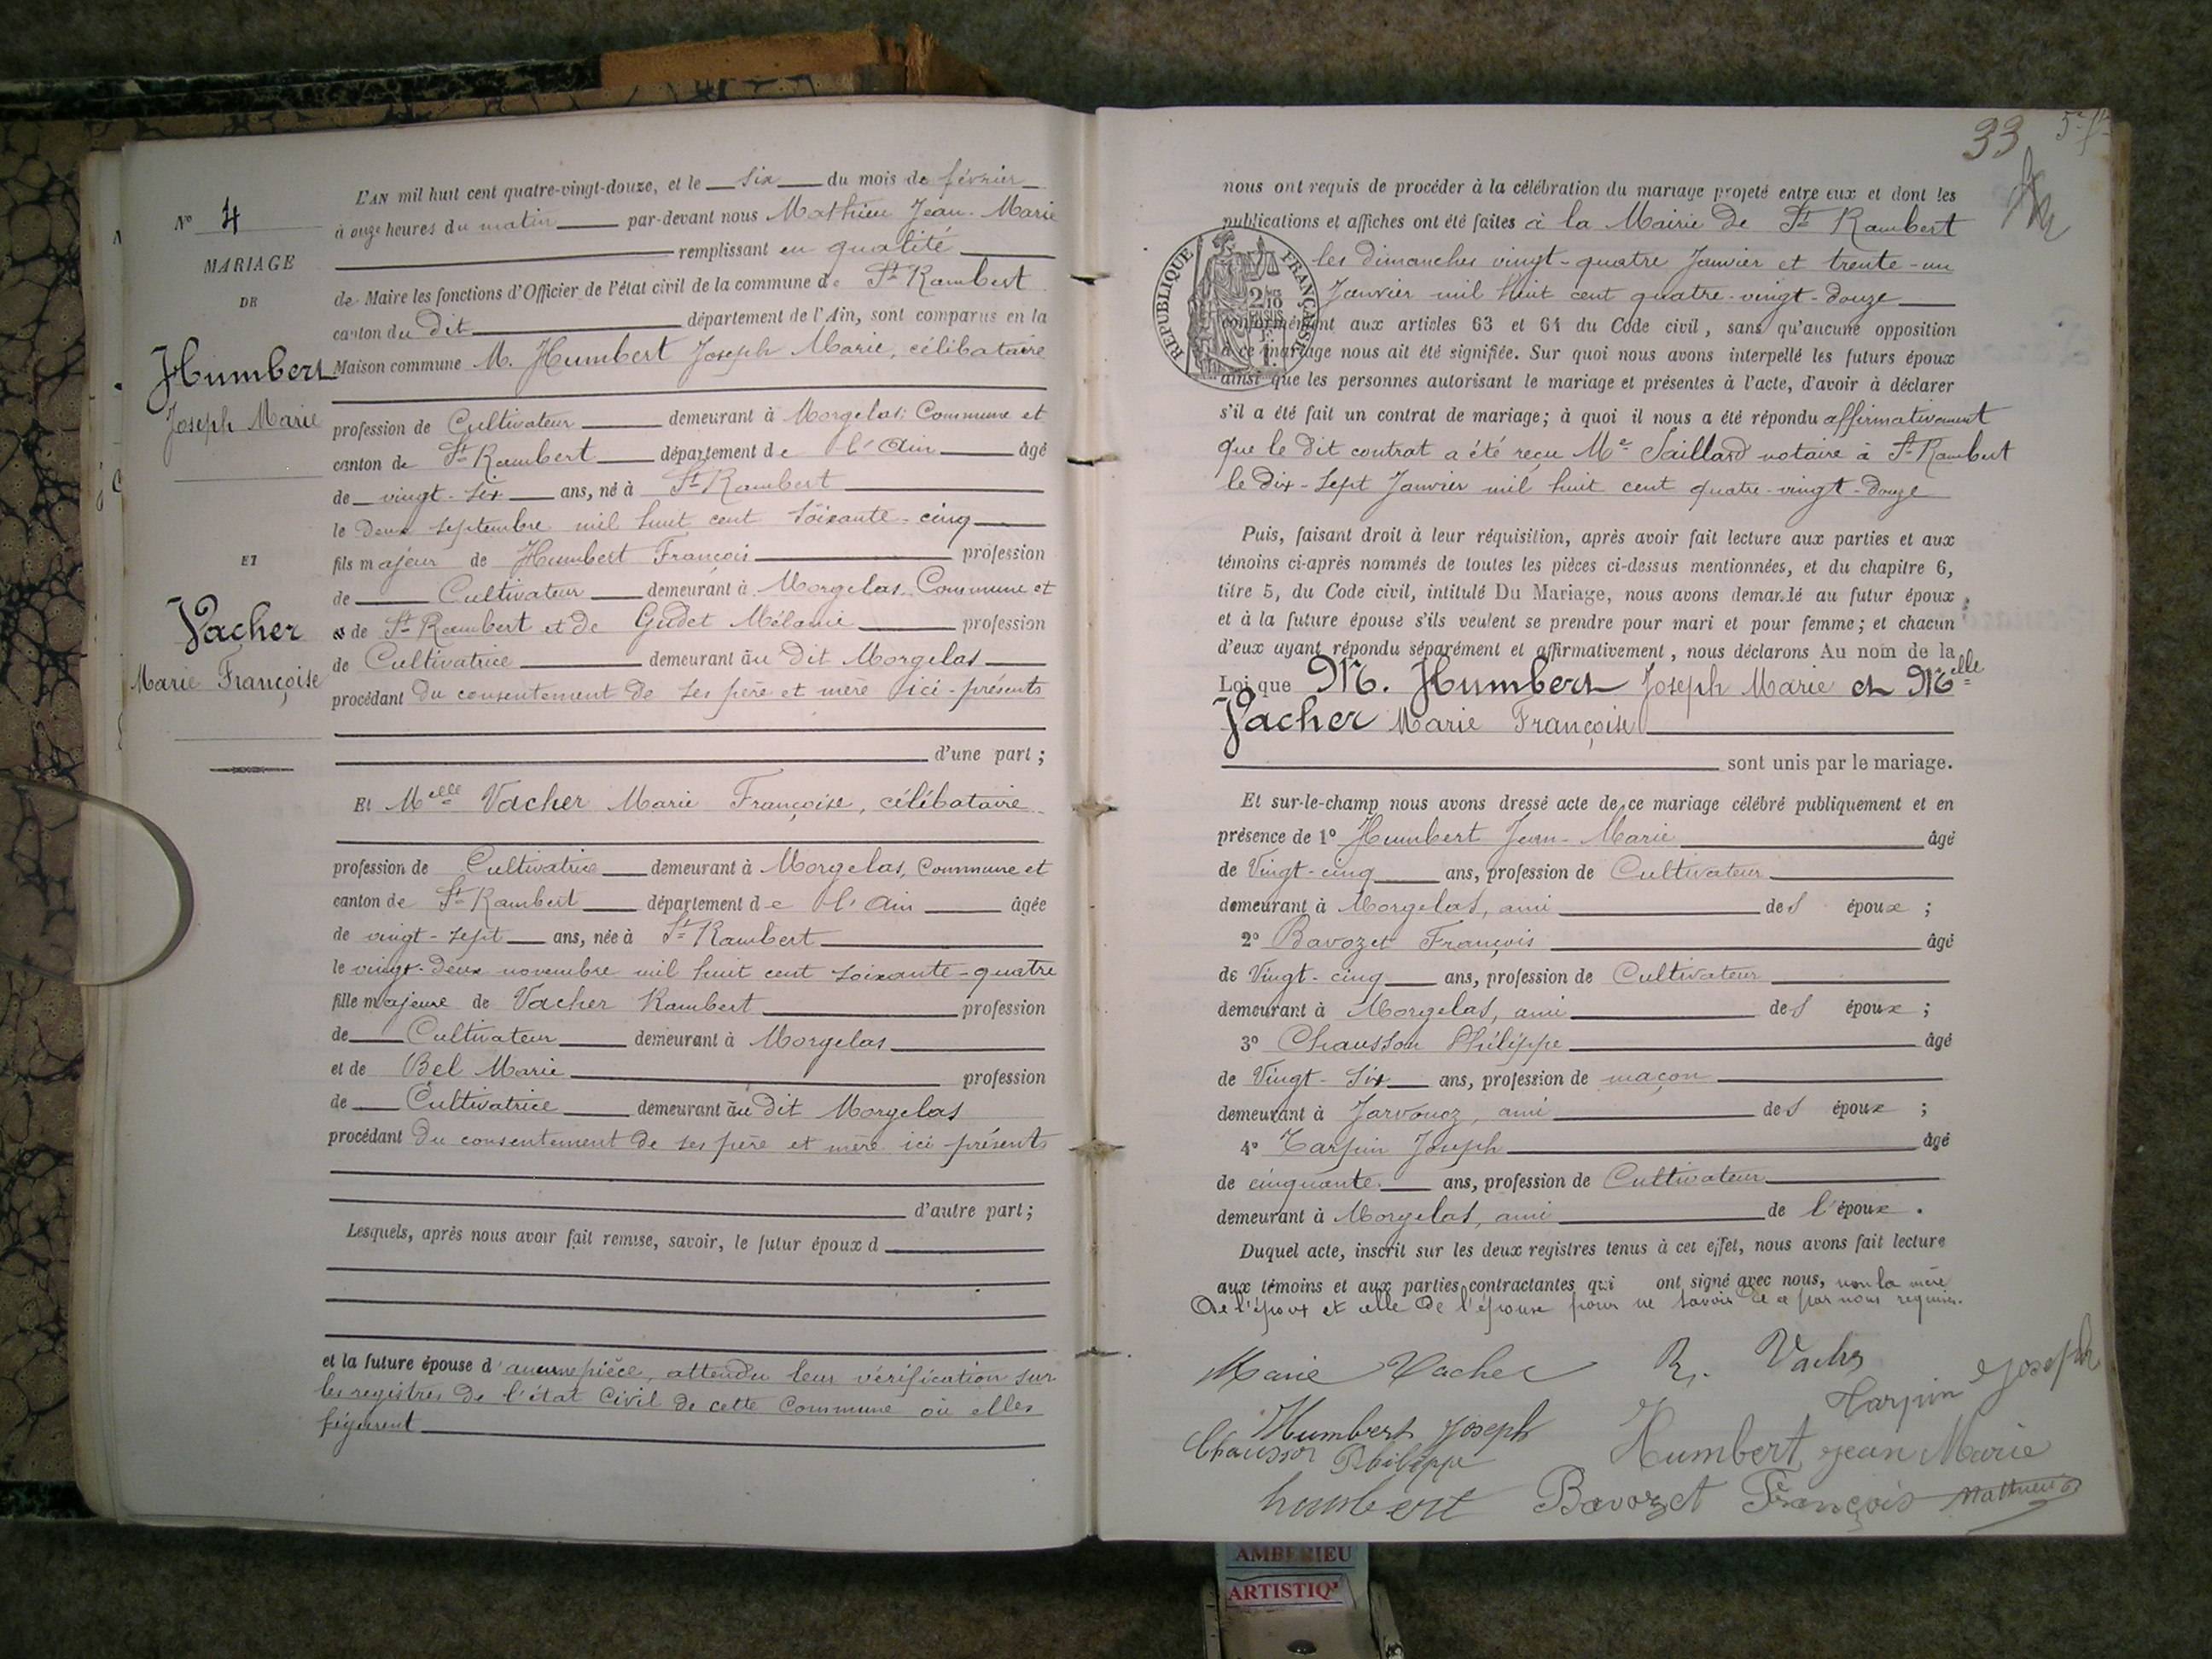 L'AN mil huit cent quatre-vingt-douze, et le six du mois de février
N° 4
à onze heures du matin par-devant nous Mathieu Jean-Marie
MARIAGE
remplissant en qualité
DE
de Maire les fonctions d'Officier de l'état civil de la commune de St Rambert
canton du dit département de l'Ain, sont comparus en la
Humbert
Joseph Marie
Maison commune M. Humbert Joseph Marie, célibataire
profession de Cultivateur demeurant à Morgelas Commune et
canton de St Rambert département de l'Ain âgé
de vingt-six ans, né à St Rambert
le deux septembre mil huit cent soixante-cinq
ET
fils majeur de Humbert François profession
de Cultivateur demeurant à Morgelas, Commune et
Vacher
Marie Françoise
de St Rambert et de Gudet Mélanie profession
de Cultivatrice demeurant au dit Morgelas
procédant du consentement de ses père et mère ici-présents
d'une part ;
Et Melle Vacher Marie Françoise, célibataire
profession de Cultivatrice demeurant à Morgelas, Commune et
canton de St Rambert département de l'Ain âgée
de vingt-sept ans, née à St Rambert
le vingt-deux novembre mil huit cent soixante-quatre
fille majeure de Vacher Rambert profession
de Cultivateur demeurant à Morgelas
et de Bel Marie profession
de Cultivatrice demeurant au dit Morgelas
procédant du consentement de ses père et mère ici présents
d'autre part ;
Lesquels, après nous avoir fait remise, savoir, le futur époux d
et la future épouse d'aucune pièce, attendu leur vérification sur
les registres de l'état Civil de cette Commune où elles
figurent
33
nous ont requis de procéder à la célébration du mariage projeté entre eux et dont les
publications et affiches ont été faites à la Mairie de St Rambert
les dimanches vingt-quatre Janvier et trente-un
Janvier mil huit cent quatre-vingt-douze
RÉPUBLIQUE FRANÇAISE
conformément aux articles 63 et 64 du Code civil, sans qu'aucune opposition
à ce mariage nous ait été signifiée. Sur quoi nous avons interpellé les futurs époux
ainsi que les personnes autorisant le mariage et présentes à l'acte, d'avoir à déclarer
s'il a été fait un contrat de mariage ; à quoi il nous a été répondu affirmativement
que le dit contrat a été reçu Me Saillard notaire à St Rambert
le dix-sept Janvier mil huit cent quatre-vingt-douze
Puis, faisant droit à leur réquisition, après avoir fait lecture aux parties et aux
témoins ci-après nommés de toutes les pièces ci-dessus mentionnées, et du chapitre 6,
titre 5, du Code civil, intitulé Du Mariage, nous avons demandé au futur époux
et à la future épouse s'ils veulent se prendre pour mari et pour femme ; et chacun
d'eux ayant répondu séparément et affirmativement, nous déclarons Au nom de la
Loi que M. Humbert Joseph Marie et Melle
Vacher Marie Françoise
sont unis par le mariage.
Et sur-le-champ nous avons dressé acte de ce mariage célébré publiquement et en
présence de 1° Humbert Jean-Marie âgé
de Vingt-cinq ans, profession de Cultivateur
demeurant à Morgelas, ami des époux ;
2° Bavozet François âgé
de Vingt-cinq ans, profession de Cultivateur
demeurant à Morgelas, ami des époux ;
3° Chausson Philippe âgé
de Vingt-six ans, profession de maçon
demeurant à Javornoz, ami des époux ;
4° Tarpin Joseph âgé
de cinquante ans, profession de Cultivateur
demeurant à Morgelas, ami de l'époux .
Duquel acte, inscrit sur les deux registres tenus à cet effet, nous avons fait lecture
aux témoins et aux parties contractantes qui ont signé avec nous, non la mère
de l'époux et celle de l'épouse pour ne savoir de ce par nous requises.
Marie Vacher R. Vacher
Tarpin Joseph
Humbert Joseph
Chausson Philippe
Humbert jean Marie
humbert Bavozet François Mathieu
AMBERIEU
ARTISTIQ